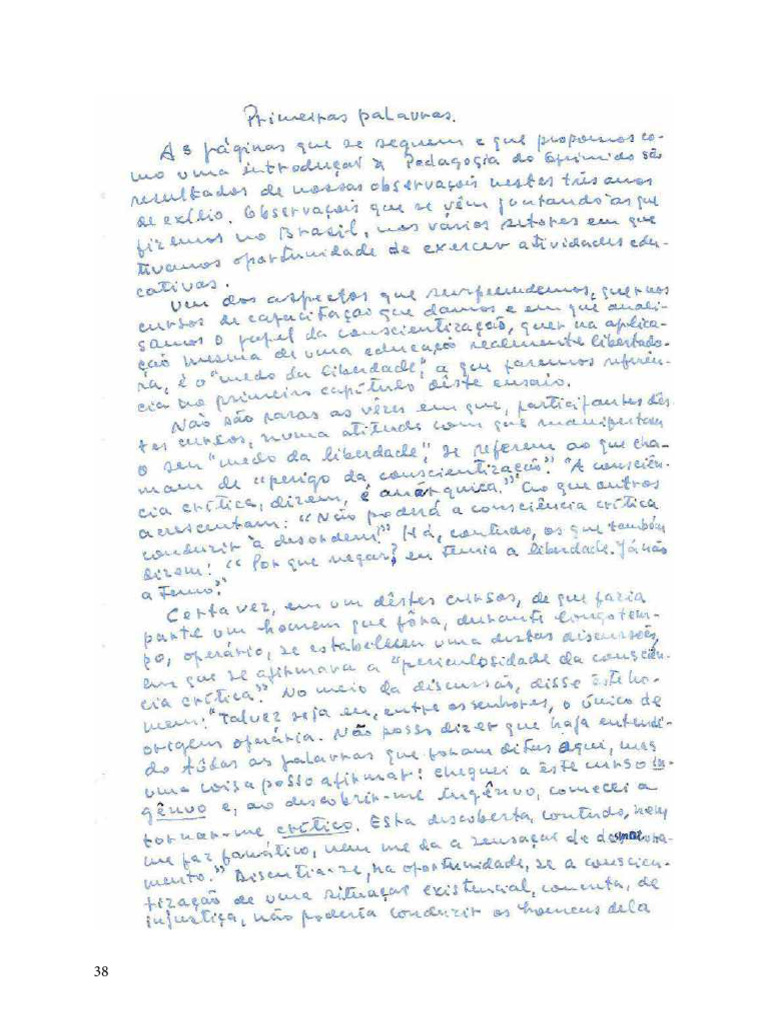 Primeiras palavras.
As páginas que se seguem e que propomos co-
mo uma introdução à Pedagogia do Oprimido são
resultados de nossas observações nestes três anos
de exílio. Observações que se vêm juntando às que
fizemos no Brasil, nos vários setores em que
tivemos oportunidade de exercer atividades edu-
cativas.
Um dos aspectos que surpreendemos, quer nos
cursos de capacitação que damos e em que anali-
samos o papel da conscientização, quer na aplica-
ção mesma de uma educação realmente libertado-
ra, é o "medo da liberdade", a que faremos referên-
cia no primeiro capítulo dêste ensaio.
Não são raras as vêzes em que, participantes dês-
tes cursos, numa atitude com que manifestam
o seu "medo da liberdade", se referem ao que cha-
mam de "perigo da conscientização". "A consciên-
cia crítica, dizem, é anárquica." Ao que outros
acrescentam: "Não poderá a consciência crítica
conduzir à desordem?" Há, contudo, os que também
dizem: "Por que negar? eu temia a liberdade. Já não
a temo".
Certa vez, em um dêstes cursos, de que fazia
parte um homem que fôra, durante longo tem-
po, operário, se estabeleceu uma destas discussões,
em que se afirmava a "periculosidade da consciên-
cia crítica". No meio da discussão, disse êste ho-
mem: "Talvez seja eu, entre os senhores, o único de
origem operária. Não posso dizer que haja entendi-
do tôdas as palavras que foram ditas aqui, mas
uma coisa posso afirmar: cheguei a êste curso in-
gênuo e, ao descobrir-me ingênuo, comecei a
tornar-me crítico. Esta descoberta, contudo, nem
me faz fanático, nem me dá a sensação de desmorona-
mento." Discutia-se, na oportunidade, se a conscien-
tização de uma situação existencial, concreta, de
injustiça, não poderia conduzir os homens dela
38